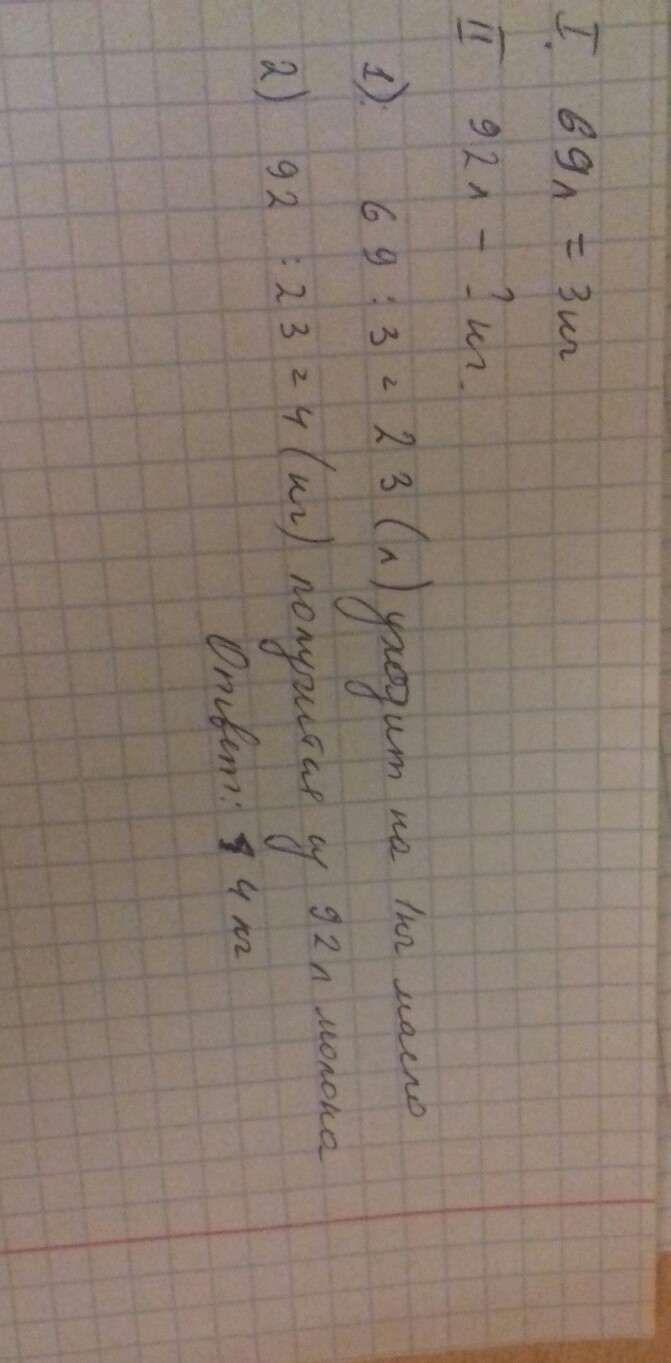 I. 69л = 3кг
II 92л - ? кг.
1) 69 : 3 = 23 (л) уходит на 1кг масло
2) 92 : 23 = 4 (кг) получится из 92л молока
Ответ: 4 кг